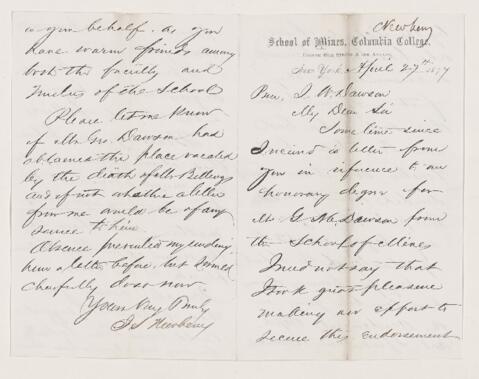 Newberry
School of Mines, Columbia College,
New York April 27th 1877
Prin. J. W. Dawson
My Dear Sir
Some time since
I received a letter from
you in reference to an
honorary degree for
Mr G. M. Dawson from
the School of Mines
I need not say that
I took great pleasure
making an effort to
secure this endorsement
in your behalf as you
have warm friends among
both the faculty and
Trustees of the School
Please let me know
if Mr Geo. Dawson has
obtained the place vacated
by the death of Mr Billings
and if not whether a letter
from me would be of any
service to him
Absence prevented my sending
him a letter before, but I would
cheerfully do so now.
Yours Very Truly
J. S. Newberry